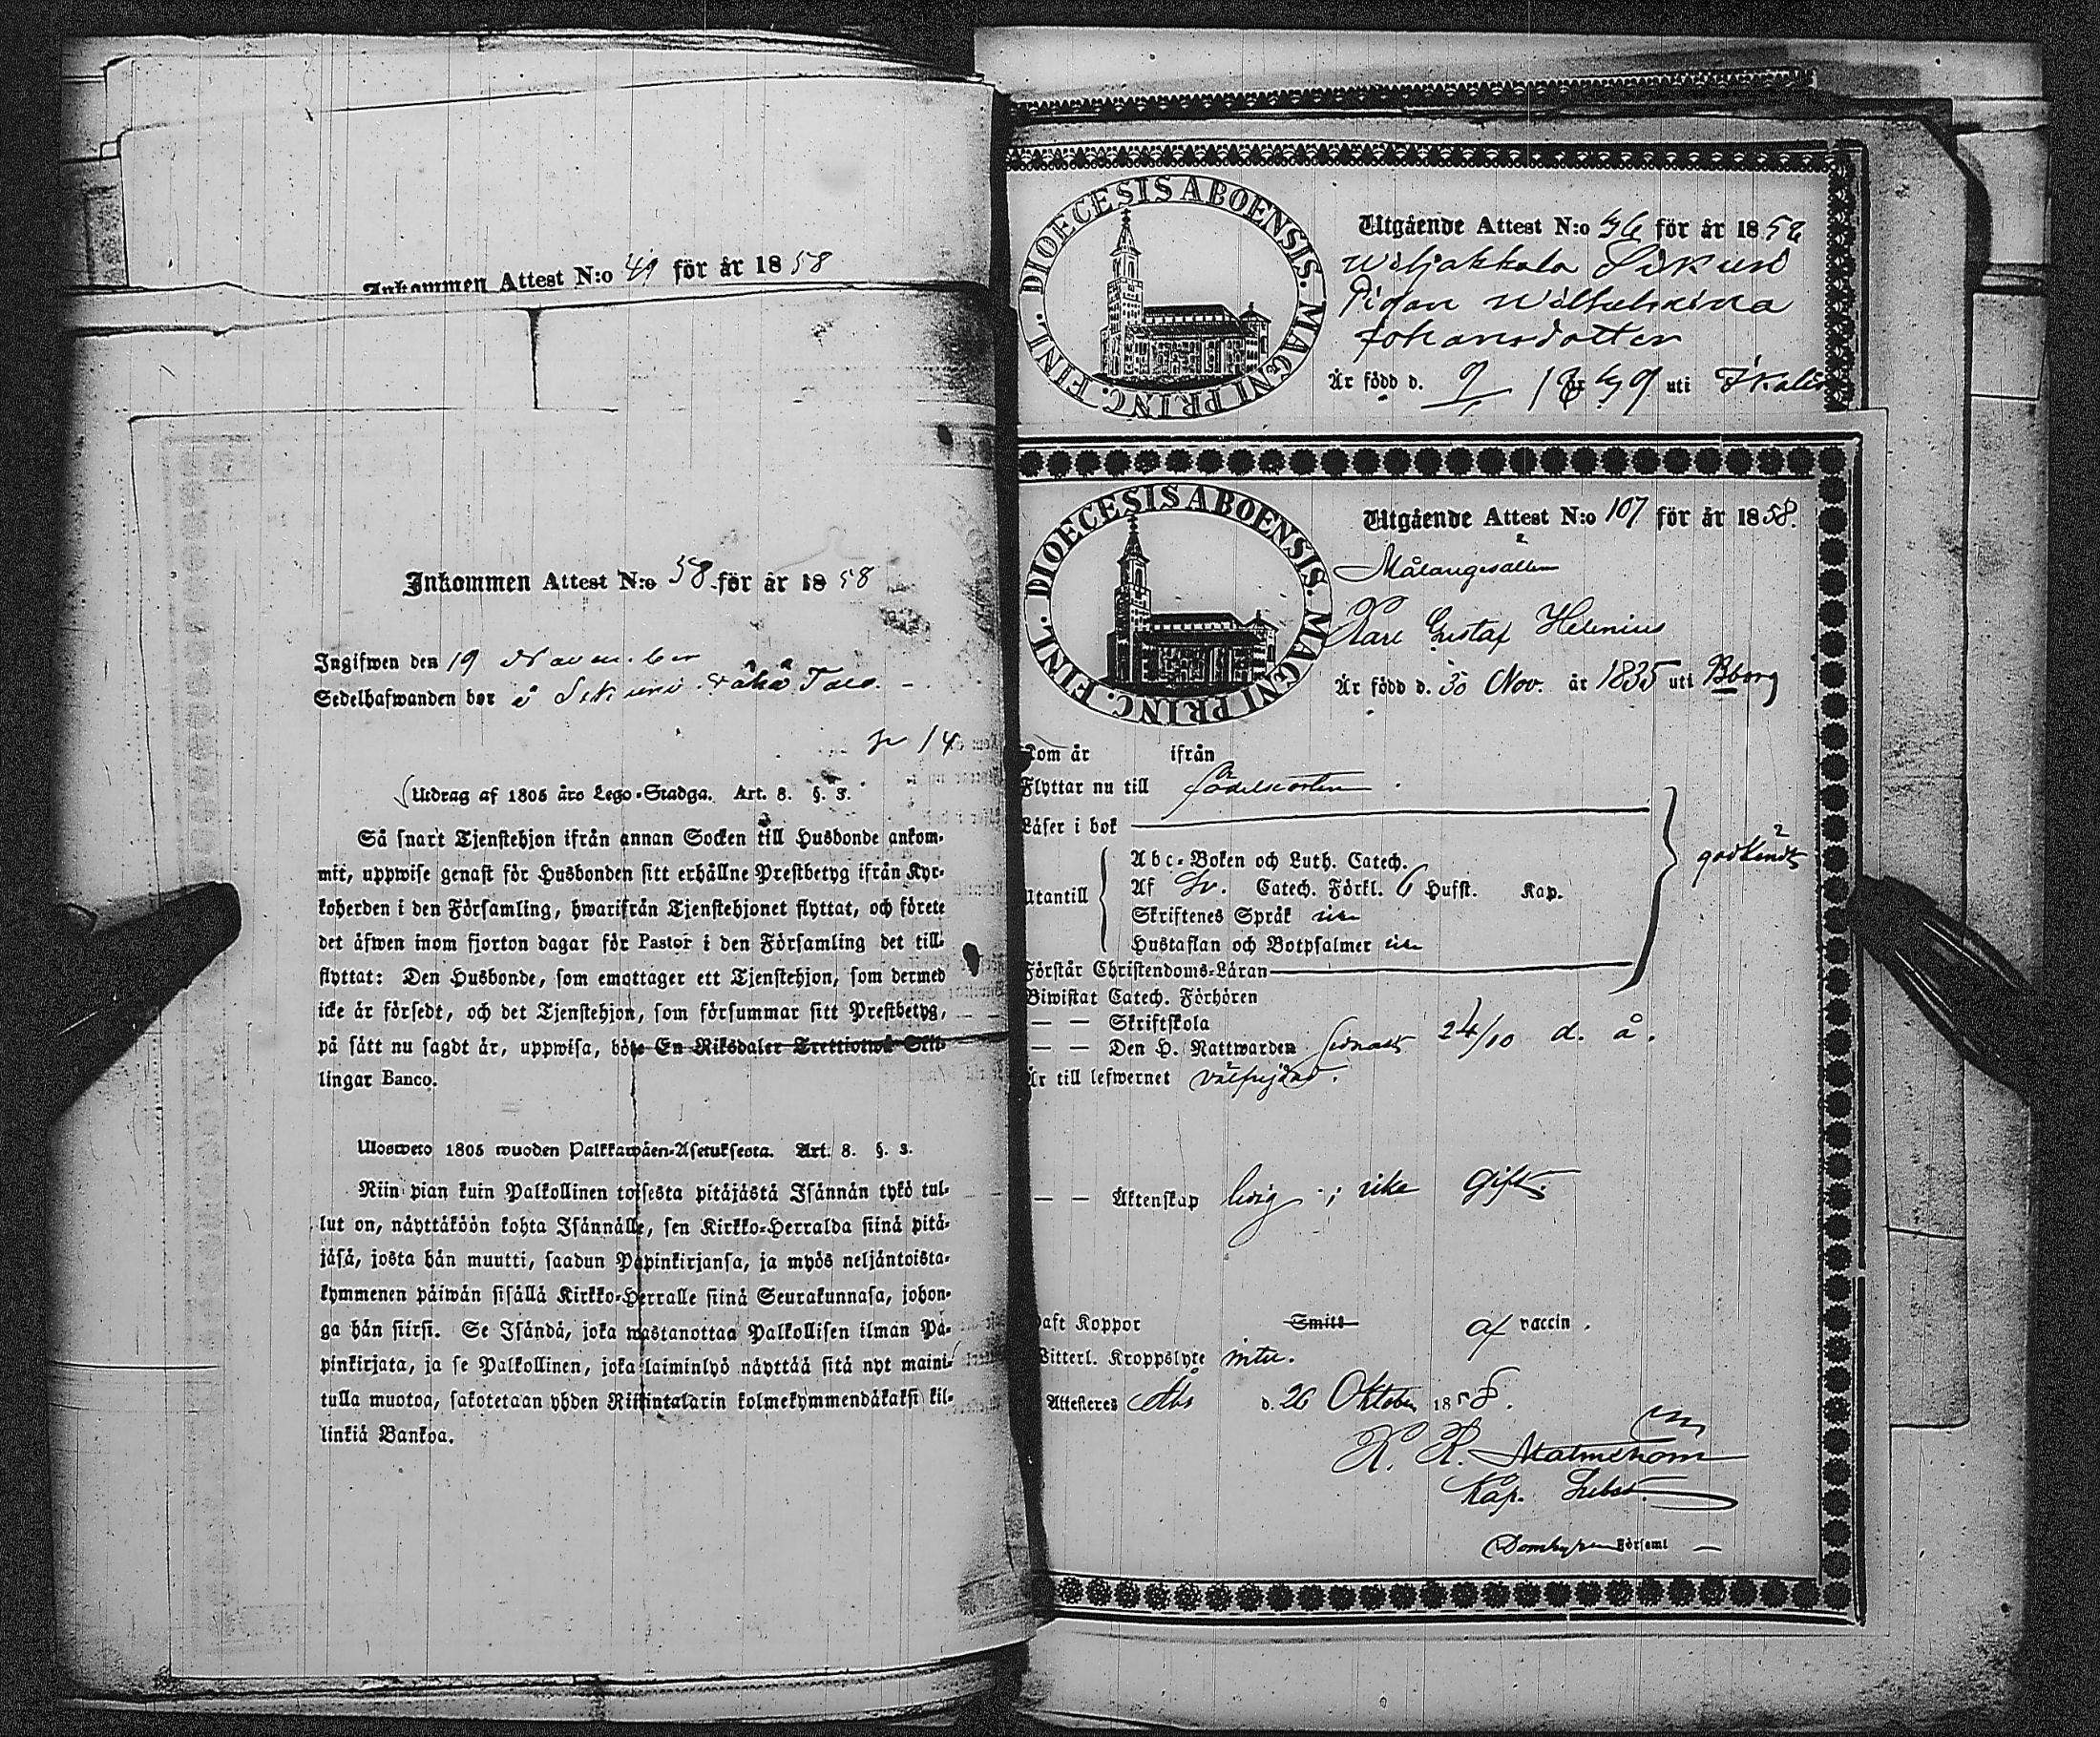 Inkommen Attest N:o 49 för år 1858
Inkommen Attest N:o 58 för år 1858
Ingifwen den 19 November
Sedelhafwanden bor i
Utdrag af 1805 års Lego-Stadga. Art. 8. §. 3.
Så snart Tjenstehjon ifrån annan Socken till Husbonde ankom-
mit, uppwise genast för Husbonden sitt erhållne Prestbetyg ifrån Kyr-
koherden i den Församling, hwarifrån Tjenstehjonet flyttat, och förete
det äfwen inom fjorton dagar för Pastor i den Församling det till-
flyttat: Den Husbonde, som emottager ett Tjenstehjon, som dermed
icke är försedt, och det Tjenstehjon, som försummar sitt Prestbetyg,
på sätt nu sagdt är, uppwisa, böte En Riksdaler Trettiotwå Skil-
lingar Banco.
Ulosweto 1805 wuoden Palkkawäen-Asetuksesta. Art. 8. §. 3.
Niin pian kuin Palkollinen toisesta pitäjästä Isännän tykö tul-
lut on, näyttäköön kohta Isännälle, sen Kirkko-Herralda siinä pitä-
jäsä, josta hän muutti, saadun Papinkirjansa, ja myös neljäntoista-
kymmenen päiwän sisällä Kirkko-Herralle siinä Seurakunnasa, johon-
ga hän siirsi. Se Isändä, joka wastanottaa Palkollisen ilman Pa-
pinkirjata, ja se Palkollinen, joka laiminlyö näyttää sitä nyt maini-
tulla muotoa, sakotetaan yhden Riikintalarin kolmekymmendäkaksi kil-
linkiä Bankoa.
DIOECESIS ABOENSIS. MAGNI PRINC. FINL.
Utgående Attest N:o 46 för år 1858
Wiljakkala
Pigan Wilhelmina
Johansdotter
Är född d. 9/ 1849 uti Ikalis
DIOECESIS ABOENSIS. MAGNI PRINC. FINL.
Utgående Attest N:o 107 för år 1858.
Målaregesällen
Karl Gustaf Helenius
Är född d. 30 Nov. år 1835 uti Bborg
Kom år ifrån
Flyttar nu till födelseorten.
Läser i bok
Abc-Boken och Luth. Catech.
Utantill Af Sv. Catech. Förkl. 6 Hufst. Kap.
Skriftenes Språk
Hustaflan och Botpsalmer
godkändt
Förstår Christendoms-Läran
Biwistat Catech. Förhören
— — Skriftskola
— — Den H. Nattwarden sednast 24/10 d. å.
Är till lefwernet välfrejdad.
— — Äktenskap ledig; icke gift.
Haft Koppor Smitt af vaccin.
Witterl. Kroppslyte intet.
Attesteres Åbo d. 26 Oktober 1858.
K. K. Malmström
Kap. Subst.
Domkyrko Församl